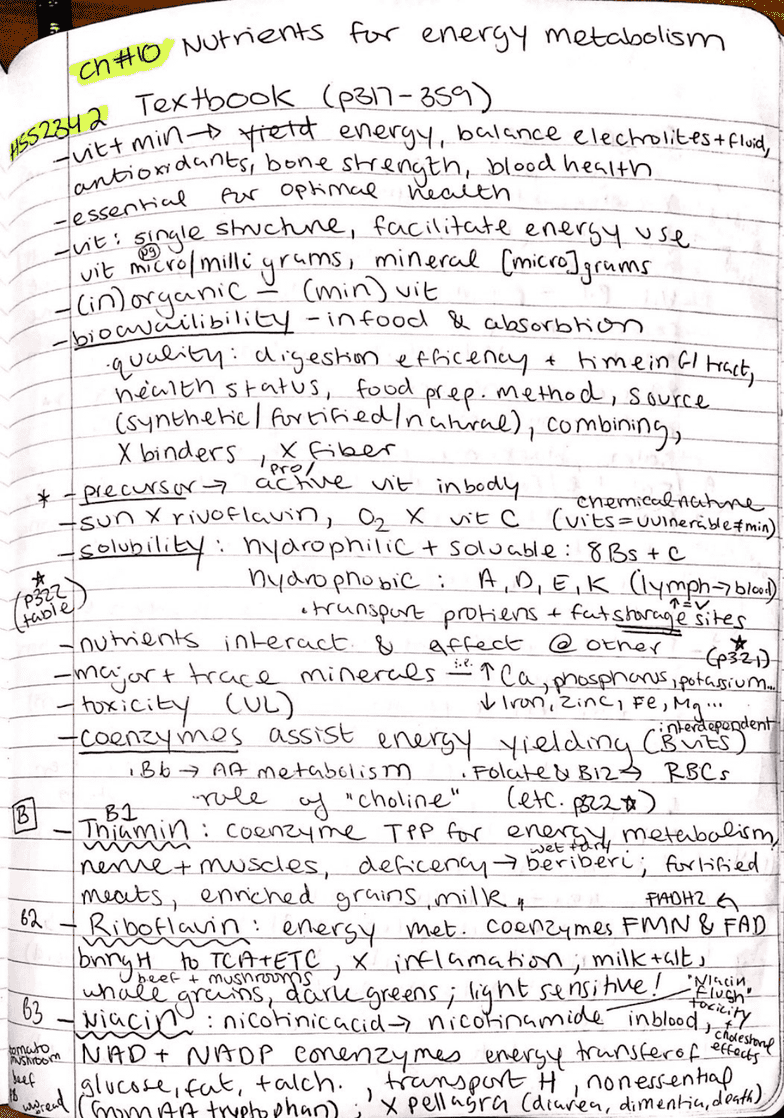 ch#10 Nutrients for energy metabolism
HSS2342 Textbook (p317-359)
-vit+min→ yield energy, balance electrolites+fluid,
antioxidants, bone strength, blood health
-essential for optimal health
-vit: single structure, facilitate energy use
(µg)
vit micro/milli grams, mineral [micro]grams
-(in)organic = (min) vit
-bioavailibility - in food & absorbtion
·quality: digestion efficency + time in GI tract,
health status, food prep. method, source
(synthetic/fortified/natural), combining,
X binders, X fiber
/pro/
* -precursor→ active vit in body
chemical nature
-sun X rivoflavin, O2 X vit C (vits=vulnerable≠min)
-solubility: hydrophilic + soluable: 8Bs + C
☆ (p322 table)
hydrophobic: A, D, E, K (lymph→blood)
↑=v
·transport protiens + fat storage sites
-nutrients interact & affect @ other ☆ (p321)
-major+trace minerals — i.e. ↑Ca, phosphorus, potassium...
-toxicity (UL) ↓Iron, Zinc, Fe, Mg...
interdependent
-coenzymes assist energy yielding (B vits)
·B6→ AA metabolism ·Folate & B12→ RBCs
role of "choline" (etc. p322☆)
B B1
-Thiamin: coenzyme TPP for energy metabolism,
wet+dry
nerve+muscles, deficency→ beriberi; fortified
meats, enriched grains, milk,
FADH2
B2 -Riboflavin: energy met. coenzymes FMN & FAD
bring H to TCA+ETC, X inflamation; milk+alt,
beef + mushrooms
whole grains, dark greens; light sensitive!
"Niacin Flush" toxicity + cholesterol effects
B3 -Niacin: nicotinic acid→ nicotinamide in blood,
NAD + NADP conenzymes energy transfer of
tomato
mushroom
beef
glucose, fat, +alch., transport H, nonessential
(from AA tryptophan); X pellagra (diarea, dimentia, death)